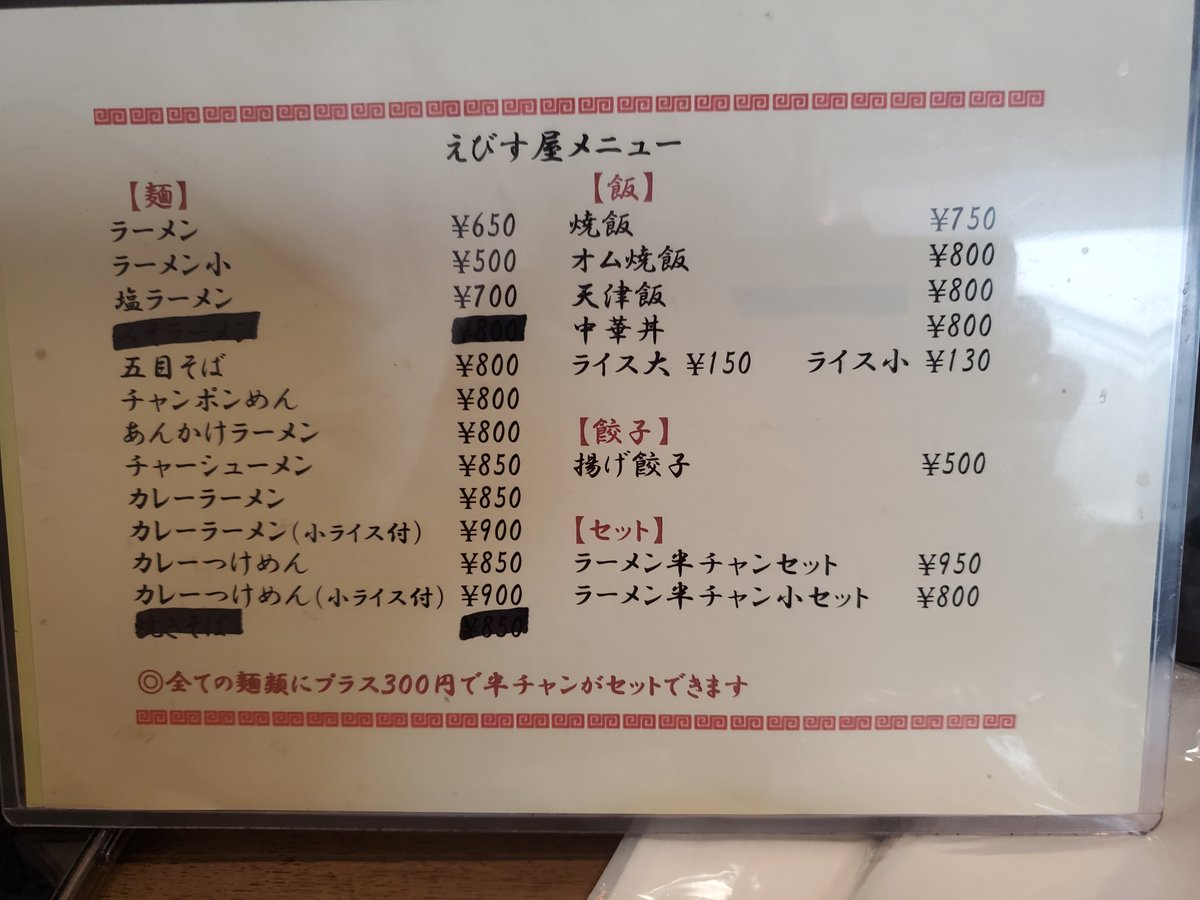 えびす屋メニュー
【麺】
ラーメン ¥650
ラーメン小 ¥500
塩ラーメン ¥700
みそラーメン ¥800
五目そば ¥800
チャンポンめん ¥800
あんかけラーメン ¥800
チャーシューメン ¥850
カレーラーメン ¥850
カレーラーメン(小ライス付) ¥900
カレーつけめん ¥850
カレーつけめん(小ライス付) ¥900
焼きそば ¥850
【飯】
焼飯 ¥750
オム焼飯 ¥800
天津飯 ¥800
中華丼 ¥800
ライス大 ¥150 ライス小 ¥130
【餃子】
揚げ餃子 ¥500
【セット】
ラーメン半チャンセット ¥950
ラーメン半チャン小セット ¥800
◎全ての麺類にプラス300円で半チャンがセットできます